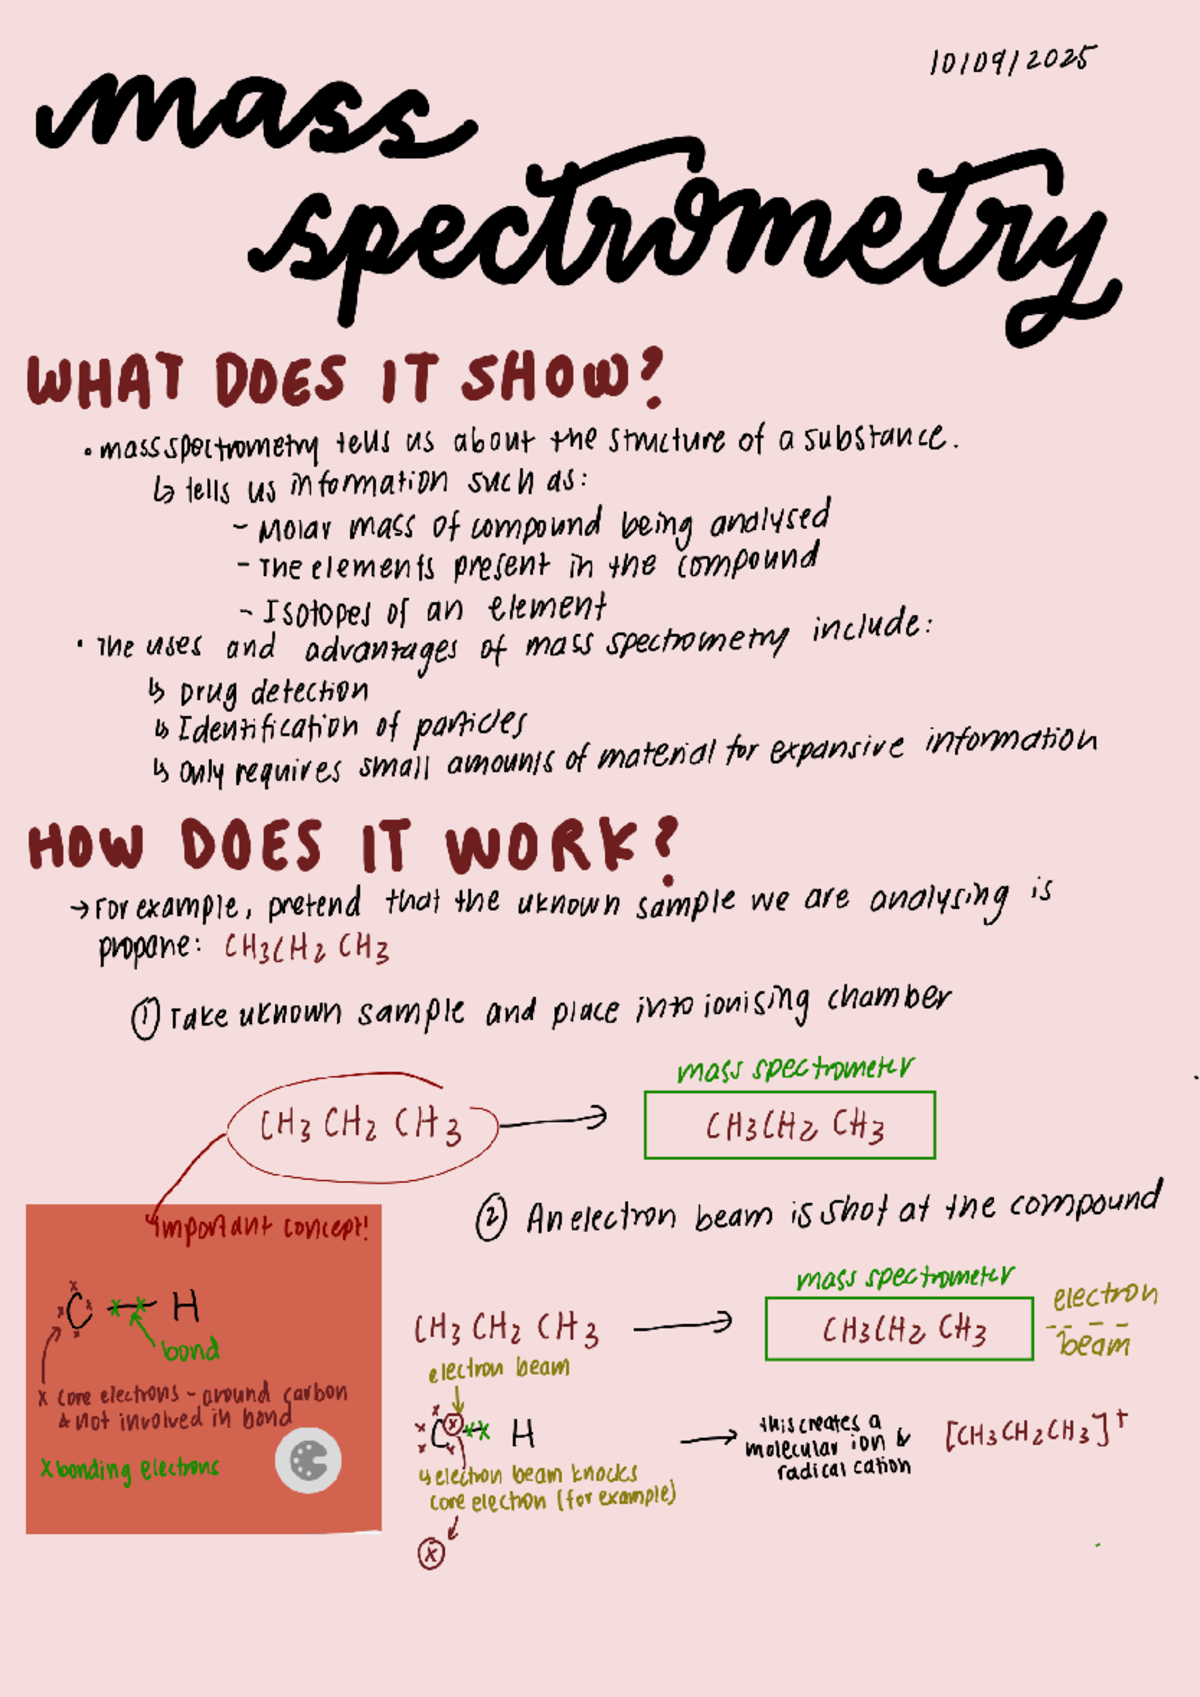 10/09/2025
mass
spectrometry
WHAT DOES IT SHOW?
• mass spectrometry tells us about the structure of a substance.
↳ tells us information such as:
- Molar mass of compound being analysed
- The elements present in the compound
- Isotopes of an element
• The uses and advantages of mass spectrometry include:
↳ Drug detection
↳ Identification of particles
↳ Only requires small amounts of material for expansive information
HOW DOES IT WORK?
→ For example, pretend that the uknown sample we are analysing is
propane: CH3CH2 CH3
① Take uknown sample and place into ionising chamber
mass spectrometer
CH3 CH2 CH3 → CH3CH2 CH3
Important concept!
C H
bond
x core electrons - around carbon
& not involved in bond
x bonding electrons
② An electron beam is shot at the compound
mass spectrometer
CH3 CH2 CH3 → CH3CH2 CH3
electron
beam
electron beam
C H
↳ electron beam knocks
core electron (for example)
x
→ this creates a
molecular ion &
radical cation
[CH3CH2CH3]+